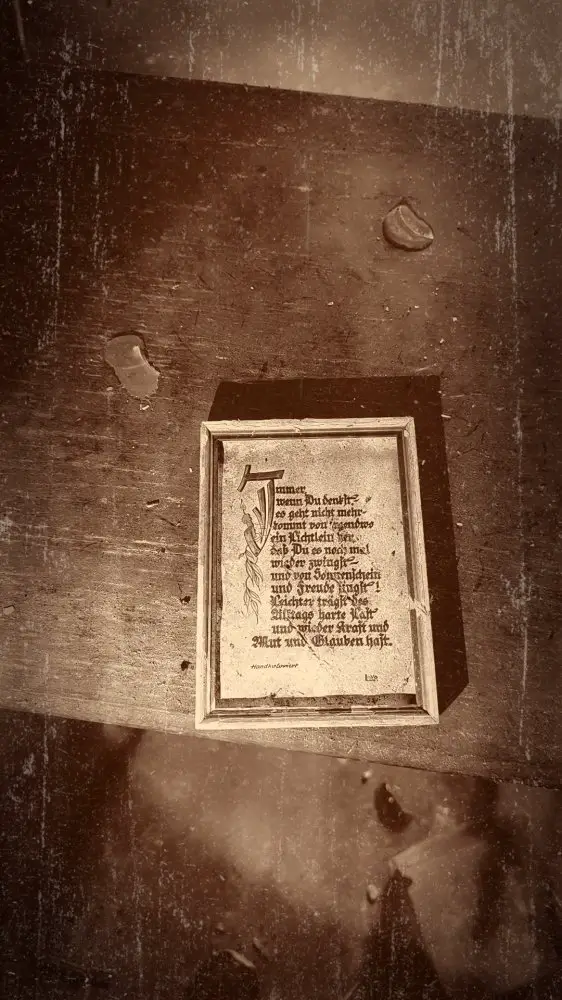 Immer,
wenn Du denkst
es geht nicht mehr-
kommt von irgendwo
ein Lichtlein her,
daß Du es noch mal
wieder zwingst-
und von Sonnenschein
und Freude singst!
Leichter trägst des
Alltags harte Last
und wieder Kraft und
Mut und Glauben hast.
Handkoloriert